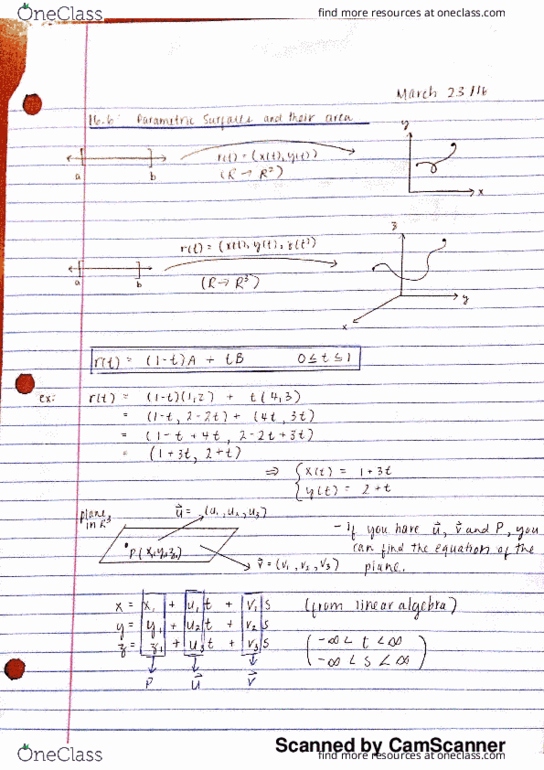 OneClass
find more resources at oneclass.com
March 23/16
16.6: Parametric Surfaces and their area
r(t) = (x(t), y(t))
(R → R²)
a b
y
x
r(t) = (x(t), y(t), z(t))
(R → R³)
a b
z
y
x
r(t) = (1-t)A + tB 0 ≤ t ≤ 1
ex: r(t) = (1-t)(1,2) + t(4,3)
= (1-t, 2-2t) + (4t, 3t)
= (1-t+4t, 2-2t+3t)
= (1+3t, 2+t)
⇒ { x(t) = 1+3t
{ y(t) = 2+t
plane in R³
u⃗ = (u₁, u₂, u₃)
P(x₁, y₁, z₁)
v⃗ = (v₁, v₂, v₃)
- If you have u⃗, v⃗ and P, you
can find the equation of the
plane.
x = x₁ + u₁t + v₁s (from linear algebra)
y = y₁ + u₂t + v₂s
z = z₁ + u₃t + v₃s
(-∞ < t < ∞
-∞ < s < ∞)
P u⃗ v⃗
Scanned by CamScanner
OneClass
find more resources at oneclass.com